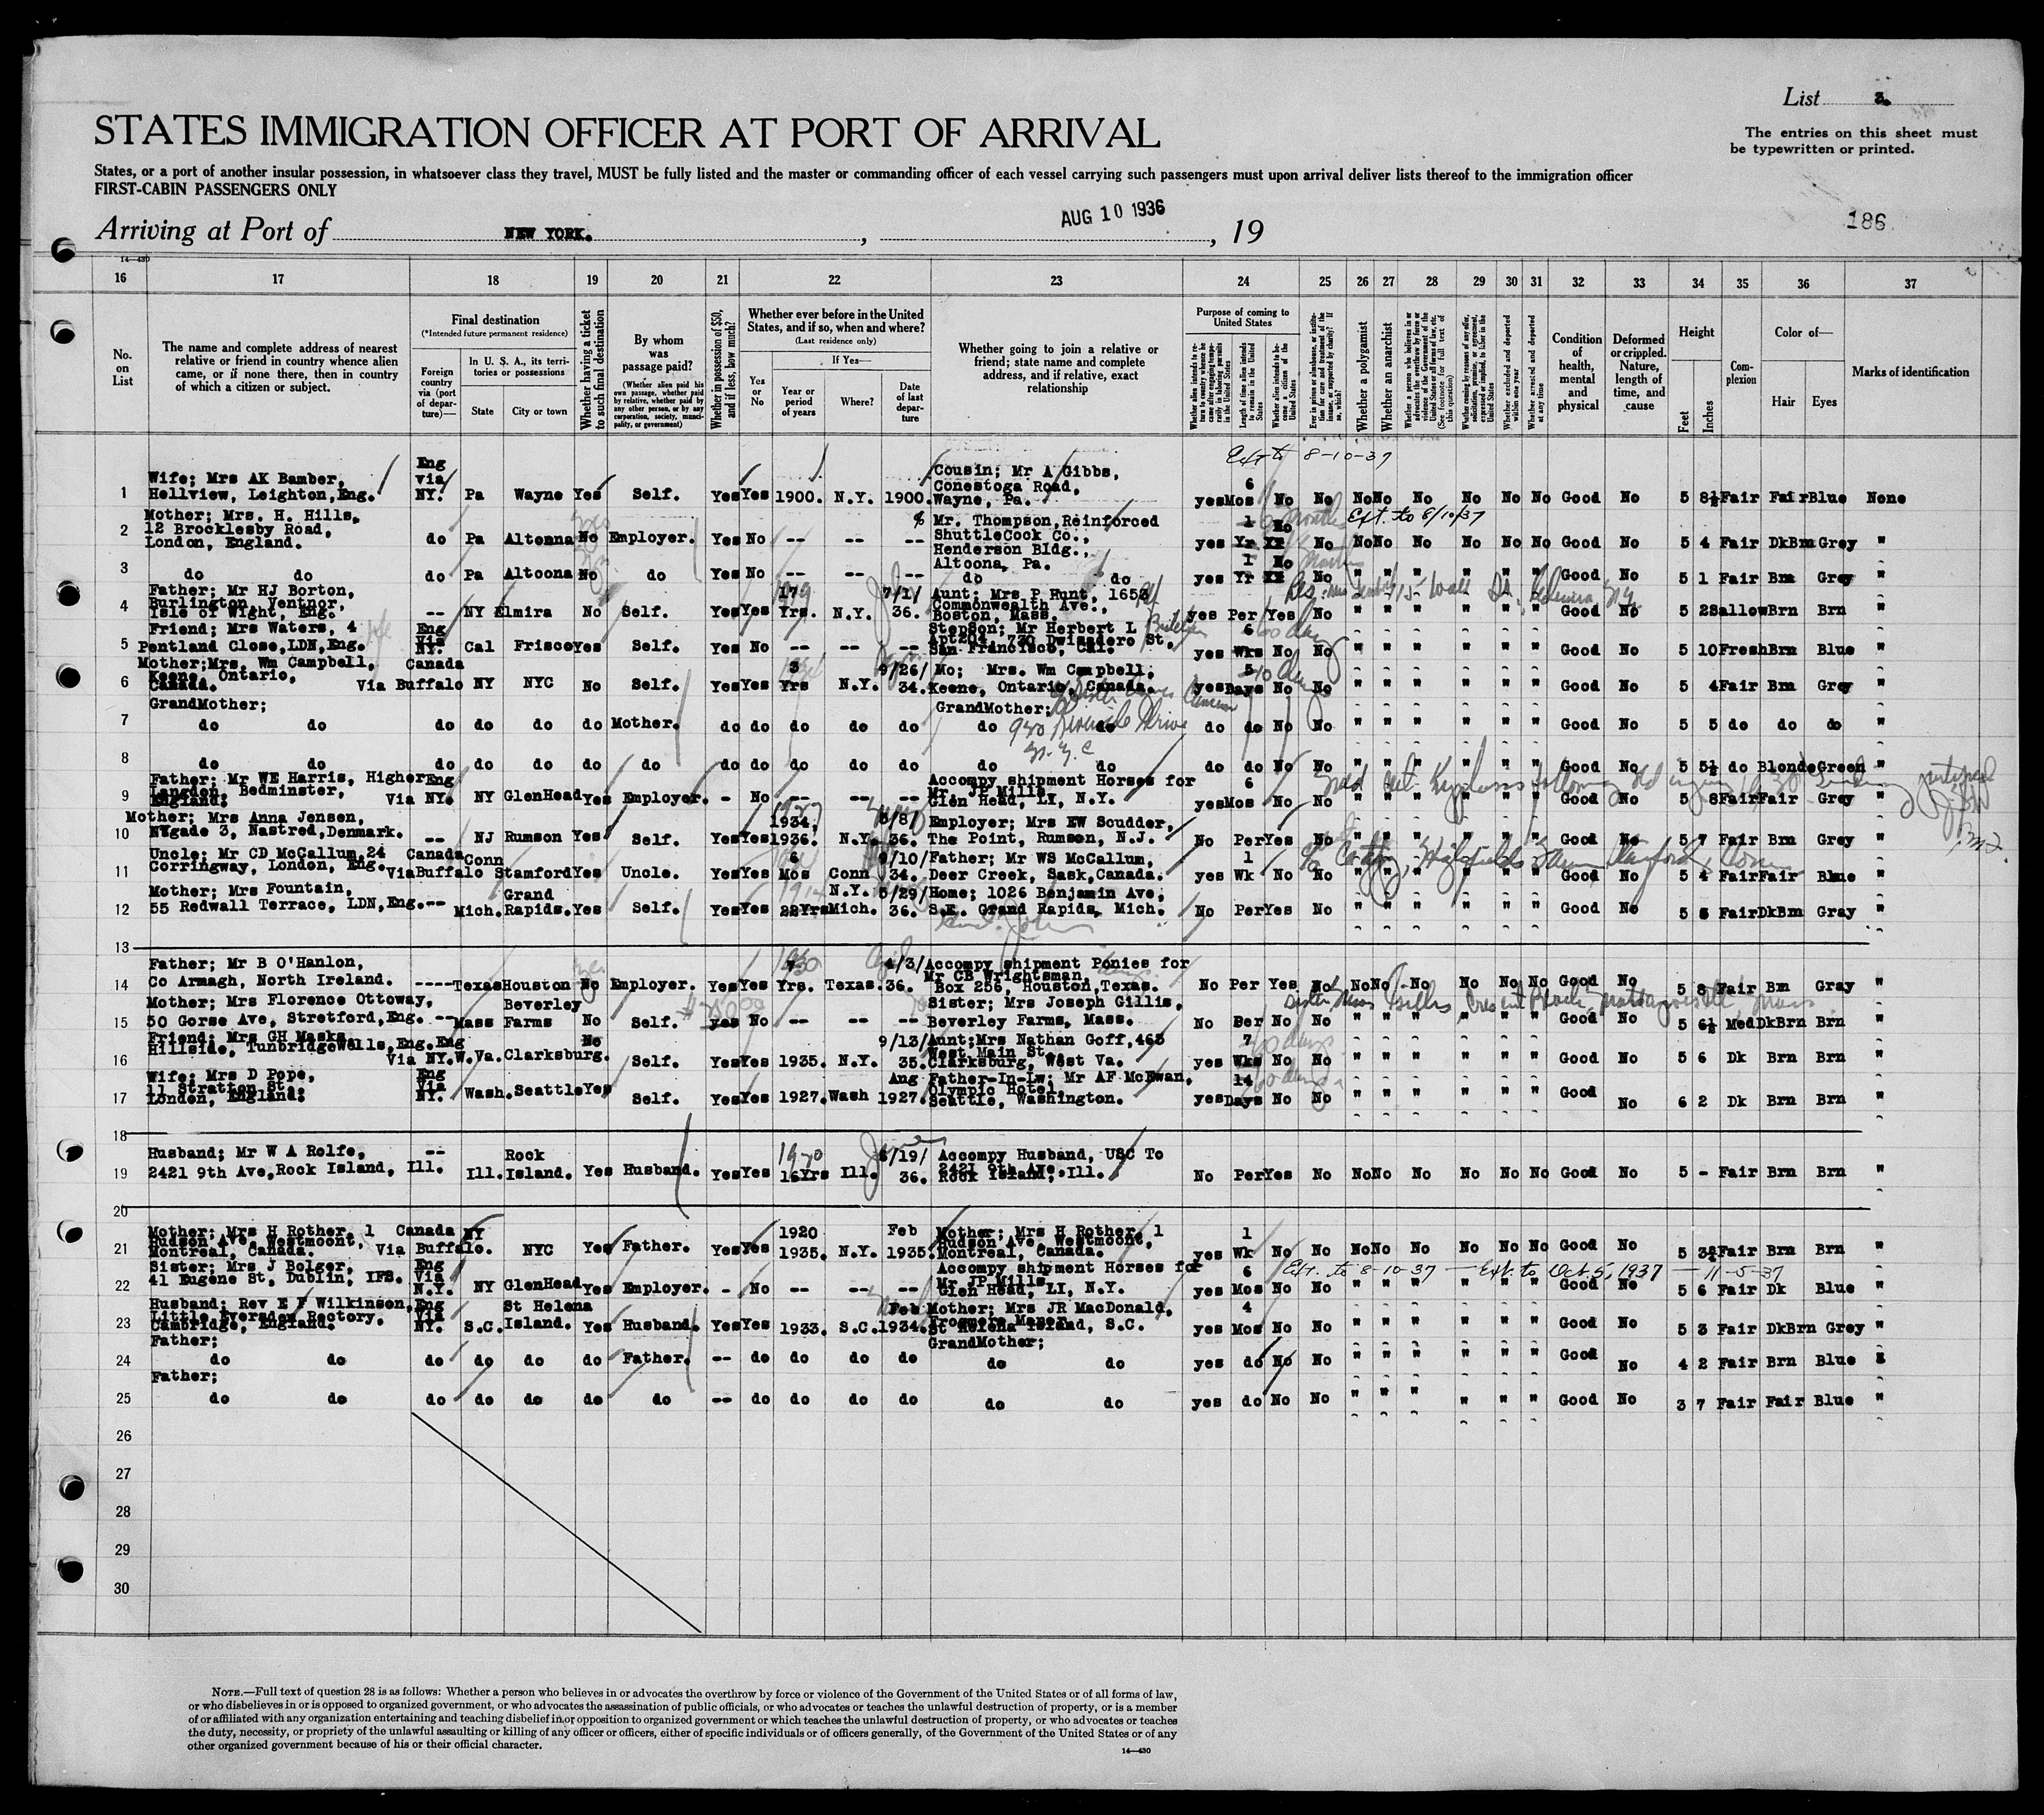 List 3.
The entries on this sheet must
be typewritten or printed.
STATES IMMIGRATION OFFICER AT PORT OF ARRIVAL
States, or a port of another insular possession, in whatsoever class they travel, MUST be fully listed and the master or commanding officer of each vessel carrying such passengers must upon arrival deliver lists thereof to the immigration officer
FIRST-CABIN PASSENGERS ONLY
Arriving at Port of NEW YORK. , AUG 10 1936 , 19
186
14—430
16 17 18 19 20 21 22 23 24 25 26 27 28 29 30 31 32 33 34 35 36 37
No. on List
The name and complete address of nearest relative or friend in country whence alien came, or if none there, then in country of which a citizen or subject.
Final destination
(*Intended future permanent residence)
Foreign country via (port of departure)—
In U. S. A., its territories or possessions
State
City or town
Whether having a ticket to such final destination
By whom was passage paid?
(Whether alien paid his own passage, whether paid by relative, whether paid by any other person, or by any corporation, society, municipality, or government)
Whether in possession of $50, and if less, how much?
Whether ever before in the United States, and if so, when and where?
(Last residence only)
Yes or No
If Yes—
Year or period of years
Where?
Date of last departure
Whether going to join a relative or friend; state name and complete address, and if relative, exact relationship
Purpose of coming to United States
Whether alien intends to return to country whence he came after engaging temporarily in laboring pursuits in the United States
Length of time alien intends to remain in the United States
Whether alien intends to become a citizen of the United States
Whether a polygamist
Whether an anarchist
Whether excluded and deported within one year
Whether arrested and deported at any time
Condition of health, mental and physical
Deformed or crippled. Nature, length of time, and cause
Height
Feet
Inches
Complexion
Color of—
Hair
Eyes
Marks of identification
Ext to 8-10-37
1 Wife; Mrs AK Bamber, Hellview, Leighton, Eng. Eng via NY. Pa Wayne Yes Self. Yes Yes 1900. N.Y. 1900. Cousin; Mr A Gibbs, Conestoga Road, Wayne, Pa. yes 6 Mos No No No No No No No No Good No 5 8½ Fair Fair Blue None
2 Mother; Mrs. H. Hills, 12 Brocklesby Road, London, England. do Pa Altoona No Employer. Yes No -- -- -- % Mr. Thompson, Reinforced ShuttleCock Co., Henderson Bldg., Altoona, Pa. yes 1 Yr No No No No No No No No Good No 5 4 Fair DkBrn Grey "
Ext. to 8/10/37
3 do do do Pa Altoona No do Yes No -- -- -- do do yes 1 Yr No No " " " " " " Good No 5 1 Fair Brn Grey "
4 Father; Mr HJ Borton, Burlington, Ventnor, Isle of Wight, Eng. -- NY Elmira No Self. Yes Yes 17 Yrs. N.Y. 7/1/36. Aunt; Mrs P Hunt, 1653 Commonwealth Ave., Boston, Mass. yes Per Yes No " " " " " " Good No 5 2 Sallow Brn Brn "
5 Friend; Mrs Waters, 4 Pentland Close, LDN, Eng. Eng Via NY. Cal Frisco Yes Self. Yes No -- -- -- StepSon; Mr Herbert L Apt204, 730 Dwisadero St, San Francisco, Cal. yes 6 Wks No No " " " " " " Good No 5 10 Fresh Brn Blue "
6 Mother; Mrs. Wm Campbell, Keene, Ontario, Canada. Canada Via Buffalo NY NYC No Self. Yes Yes 3 Yrs N.Y. 9/26/34. Mo; Mrs. Wm Campbell, Keene, Ontario, Canada. yes 5 Days No No " " " " " " Good No 5 4 Fair Brn Grey "
7 GrandMother; do do do do do do Mother. do do do do do GrandMother; do do do do No No " " " " " " Good No 5 5 do do do "
930 Riverside Drive N.Y.C
8 do do do do do do do do do do do do do do No No " " " " " " Good No 5 5½ do Blonde Green "
9 Father; Mr WE Harris, Higher Langdon, Bedminster, England; Eng Via NY. NY GlenHead Yes Employer. - No -- -- -- Accompy shipment Horses for Mr. JP Mills, Glen Head, LI, N.Y. yes 6 Mos No No " " " " " " Good No 5 8 Fair Fair Grey "
10 Mother; Mrs Anna Jensen, Nygade 3, Nastred, Denmark. -- NJ Rumson Yes Self. Yes Yes 1934, 1936. N.Y. 3/8/36. Employer; Mrs EW Scudder, The Point, Rumson, N.J. No Per Yes No " " " " " " Good No 5 7 Fair Brn Grey "
11 Uncle; Mr CD McCallum, 24 Corringway, London, Eng. Canada Via Buffalo Conn Stamford Yes Uncle. Yes Yes 6 Mos Conn 9/10/34. Father; Mr WS McCallum, Deer Creek, Sask, Canada. yes 1 Wk No No " " " " " " Good No 5 4 Fair Fair Blue "
12 Mother; Mrs Fountain, 55 Redwall Terrace, LDN, Eng. -- Mich. Grand Rapids. Yes Self. Yes Yes 22Yrs N.Y. Mich. 5/29/36. Home; 1026 Benjamin Ave, S.E. Grand Rapids, Mich. No Per Yes No " " " " " " Good No 5 5 Fair DkBrn Gray "
13
14 Father; Mr B O'Hanlon, Co Armagh, North Ireland. ---- Texas Houston No Employer. Yes Yes Yrs. Texas. 4/3/36. Accompy shipment Ponies for Mr CB Wrightsman, Box 256, Houston, Texas. No Per Yes No No No No No No No Good No 5 8 Fair Brn Gray "
15 Mother; Mrs Florence Ottoway, 50 Gorse Ave, Stretford, Eng. -- Mass Beverley Farms No Self. yes No -- -- -- Sister; Mrs Joseph Gillis, Beverley Farms, Mass. No Per No No " " " " " " Good No 5 6½ Med DkBrn Brn "
16 Friend; Mrs GH Masks, Hillside, TunbridgeWells, Eng. Eng Via NY. W.Va. Clarksburg. No Self. Yes Yes 1935. N.Y. 9/13/35. Aunt; Mrs Nathan Goff, 463 West Main St, Clarksburg, West Va. yes 7 Wks No No " " " " " " Good No 5 6 Dk Brn Brn "
17 Wife; Mrs D Pope, 11 Stratton St, London, England. Eng Via NY. Wash. Seattle Yes Self. Yes Yes 1927. Wash Aug 1927. Father-In-Lw; Mr AF McEwan, Olympic Hotel, Seattle, Washington. yes 14 Days No No " " " " " " Good No 6 2 Dk Brn Brn "
18
19 Husband; Mr W A Rolfe, 2421 9th Ave, Rock Island, Ill. -- Ill. Rock Island. Yes Husband. Yes Yes 1920 16Yrs Ill. 6/19/36. Accompy Husband, USC To 2421 9th Ave, Rock Island, Ill. No Per Yes No No No No No No No Good No 5 - Fair Brn Brn "
20
21 Mother; Mrs H Rother, 1 Hudson Ave, Westmoont, Montreal, Canada. Canada Via Buffalo. NY NYC Yes Father. Yes Yes 1920 1935. N.Y. Feb 1935. Mother; Mrs H Rother, 1 Hudson Ave, Westmoont, Montreal, Canada. yes 1 Wk No No No No No No No No Good No 5 3¾ Fair Brn Brn "
Ext. to 8-10-37 — Ext to Oct 5, 1937 — 11-5-37
22 Sister; Mrs J Bolger, 41 Eugene St, Dublin, IFS. Eng Via N.Y. NY GlenHead Yes Employer. - No -- -- -- Accompy shipment Horses for Mr JP Mills, Glen Head, LI, N.Y. yes 6 Mos No No " " " " " " Good No 5 6 Fair Dk Blue "
23 Husband; Rev E F Wilkinson, Little Eversden Rectory, Cambridge, England. Eng Via NY. S.C. St Helena Island. Yes Husband. Yes Yes 1933. S.C. Feb 1934. Mother; Mrs JR MacDonald, Frogmore Manor, St Helena Island, S.C. yes 4 Mos No No " " " " " " Good No 5 3 Fair DkBrn Grey "
24 Father; do do do do do do Father. -- do do do do GrandMother; do do yes do No No " " " " " " Good No 4 2 Fair Brn Blue "
25 Father; do do do do do do do -- do do do do do do yes do No No " " " " " " Good No 3 7 Fair Fair Blue "
26
27
28
29
30
NOTE.—Full text of question 28 is as follows: Whether a person who believes in or advocates the overthrow by force or violence of the Government of the United States or of all forms of law,
or who disbelieves in or is opposed to organized government, or who advocates the assassination of public officials, or who advocates or teaches the unlawful destruction of property, or is a member
of or affiliated with any organization entertaining and teaching disbelief in or opposition to organized government or which teaches the unlawful destruction of property, or who advocates or teaches
the duty, necessity, or propriety of the unlawful assaulting or killing of any officer or officers, either of specific individuals or of officers generally, of the Government of the United States or of any
other organized government because of his or their official character.
14—430